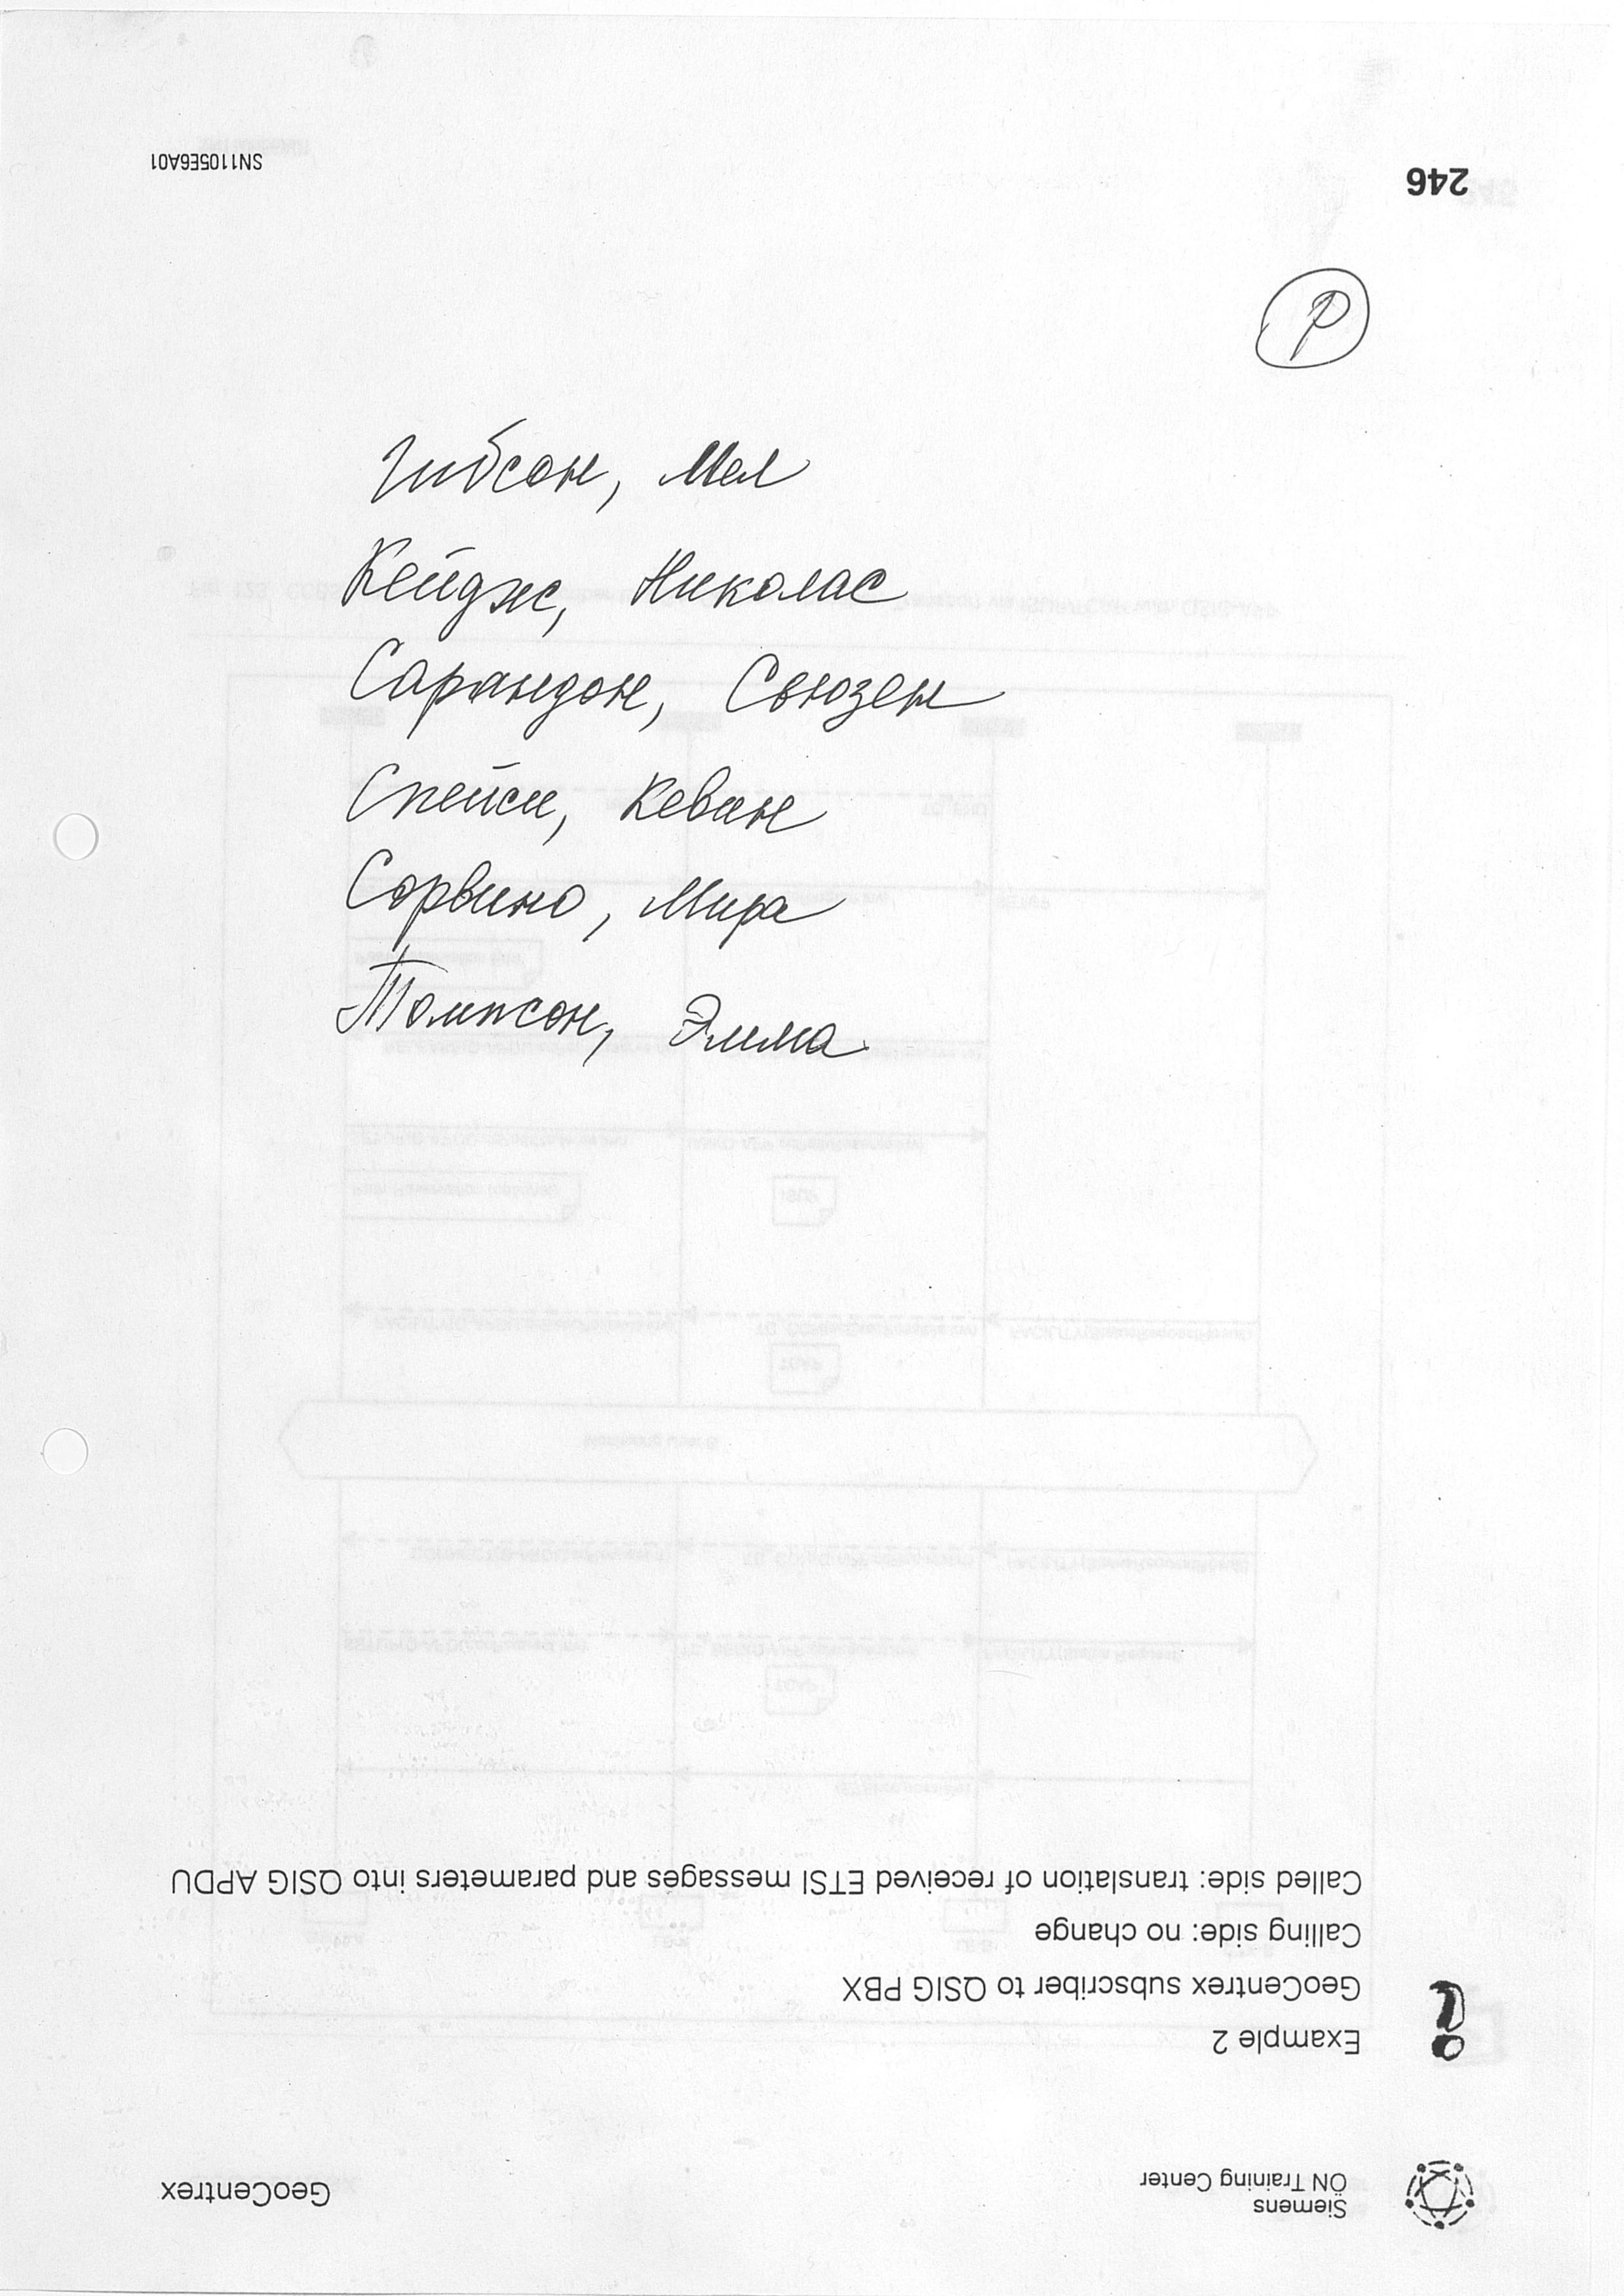 Р
Гибсон, Мел
Кейдж, Николас
Сарандон, Сьюзен
Спейси, Кевин
Сорвино, Мира
Томпсон, Эмма
Siemens
ÖN Training Center
GeoCentrex
Example 2
GeoCentrex subscriber to QSIG PBX
Calling side: no change
Called side: translation of received ETSI messages and parameters into QSIG APDU
246
SN1105E6A01